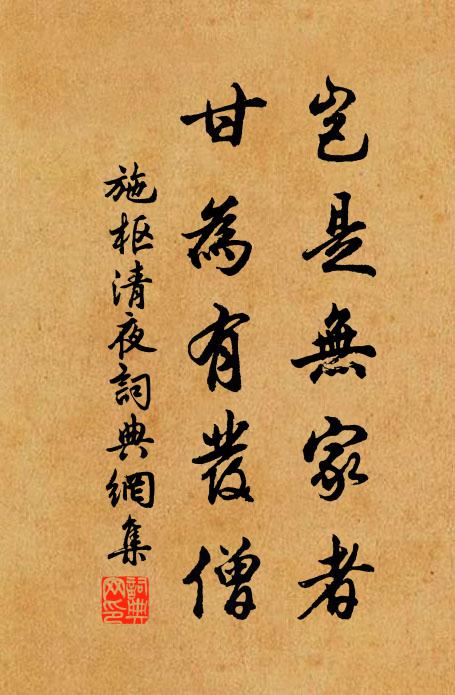 豈是無家者
甘為有發僧
施枢清夜詞典網集
詞典网印